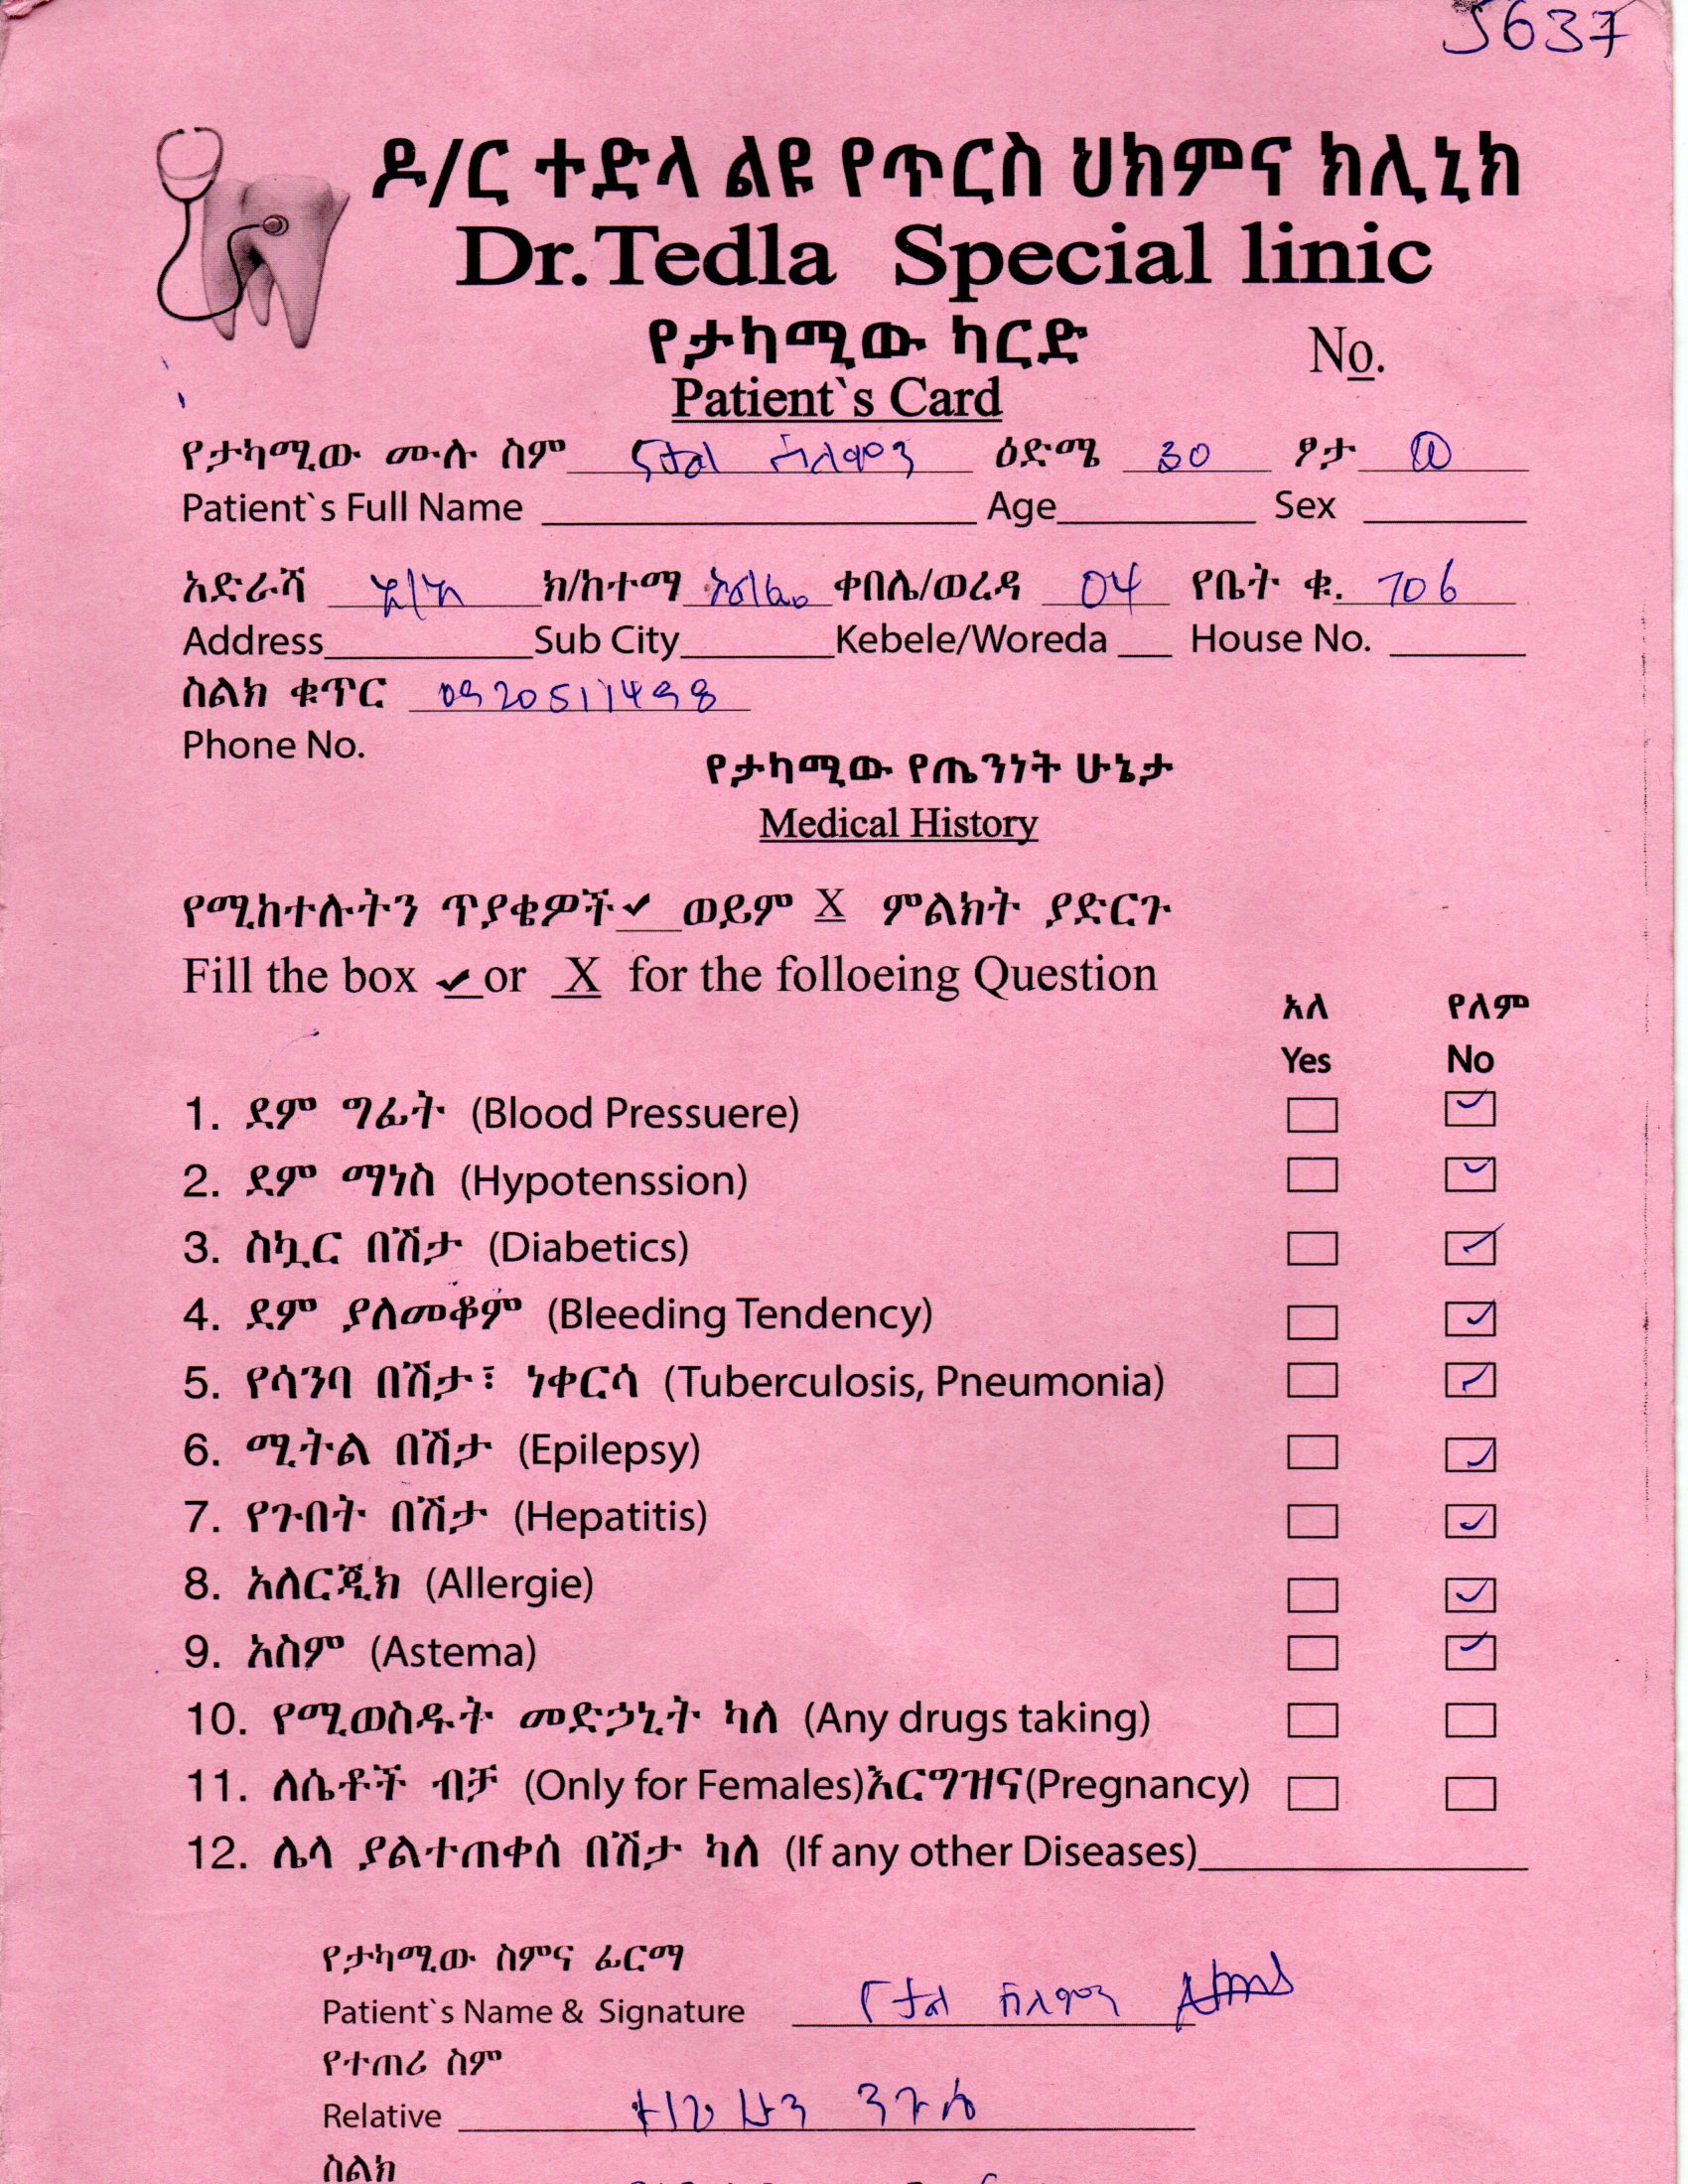 5637
ዶ/ር ተድላ ልዩ የጥርስ ህክምና ክሊኒክ
Dr.Tedla Special linic
የታካሚው ካርድ
No.
Patient`s Card
የታካሚው ሙሉ ስም ናታል ሰለሞን ዕድሜ 30 ፆታ ወ
Patient`s Full Name Age Sex
አድራሻ አ/አ ክ/ከተማ ቀበሌ/ወረዳ 04 የቤት ቁ. 706
Address Sub City Kebele/Woreda House No.
ስልክ ቁጥር 0920511498
Phone No.
የታካሚው የጤንነት ሁኔታ
Medical History
የሚከተሉትን ጥያቄዎች ✔ ወይም X ምልክት ያድርጉ
Fill the box ✔ or X for the folloeing Question
አለ የለም
Yes No
1. ደም ግፊት (Blood Pressuere) ✓
2. ደም ማነስ (Hypotenssion) ✓
3. ስኳር በሽታ (Diabetics) ✓
4. ደም ያለመቆም (Bleeding Tendency) ✓
5. የሳንባ በሽታ፣ ነቀርሳ (Tuberculosis, Pneumonia) ✓
6. ሚትል በሽታ (Epilepsy) ✓
7. የጉበት በሽታ (Hepatitis) ✓
8. አለርጂክ (Allergie) ✓
9. አስም (Astema) ✓
10. የሚወስዱት መድኃኒት ካለ (Any drugs taking)
11. ለሴቶች ብቻ (Only for Females)እርግዝና(Pregnancy)
12. ሌላ ያልተጠቀሰ በሽታ ካለ (If any other Diseases)
የታካሚው ስምና ፊርማ
Patient`s Name & Signature ናታል ሰለሞን
የተጠሪ ስም
Relative ንጉሴ
ስልክ